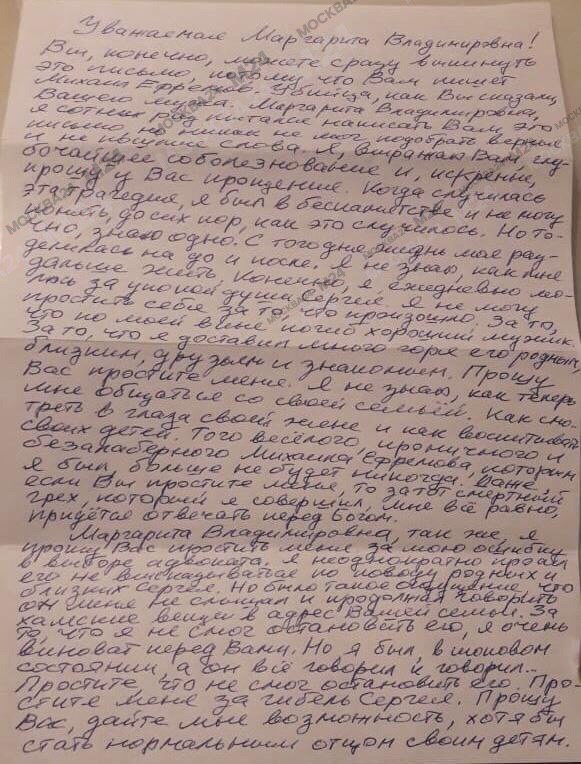 Уважаемая Маргарита Владимировна!
Вы, конечно, можете сразу выкинуть
это письмо, потому что Вам пишет
Михаил Ефремов. Убийца, как Вы сказали,
Вашего мужа. Маргарита Владимировна,
я сотни раз пытался написать Вам это
письмо, но никак не мог подобрать верные
и не пошлые слова. Я, выражаю Вам, глу-
бочайшее соболезнование и, искренне,
прошу у Вас прощение. Когда случилась
эта трагедия, я был в беспамятстве и не могу
понять, до сих пор, как это случилось. Но то-
чно, знаю одно. С того дня жизнь моя раз-
делилась на до и после. Я не знаю, как мне
дальше жить. Конечно, я, ежедневно мо-
люсь за упокой души Сергея. Я не могу
простить себя за то, что произошло. За то,
что по моей вине погиб хороший мужик.
За то, что я доставил много горя его родным,
близким, друзьям и знакомым. Прошу
Вас простите меня. Я не знаю, как теперь
мне общаться со своей семьёй. Как смо-
треть в глаза своей жене и как воспитывать
своих детей. Того весёлого, ироничного и
безалаберного Михаила Ефремова, которым
я был, больше не будет никогда. Даже
если Вы простите меня, то за тот смертный
грех, который я совершил, мне всё равно,
придётся отвечать перед Богом.
Маргарита Владимировна, так же, я
прошу Вас простить меня за мою ошибку
в выборе адвоката. Я неоднократно просил
его не высказываться по поводу родных и
близких Сергея. Но было такое ощущение, что
он меня не слышал и продолжал говорить
хамские вещи в адрес Вашей семьи. За
то, что я не смог остановить его, я очень
виноват перед Вами. Но я был в шоковом
состоянии, а он всё говорил и говорил...
Простите, что не смог остановить его. Про-
стите меня за гибель Сергея. Прошу
Вас, дайте мне возможность, хотя бы
стать нормальным отцом своим детям.
МОСКВА24
МОСКВА24
МОСКВА24
МОСКВА24
МОСКВА24